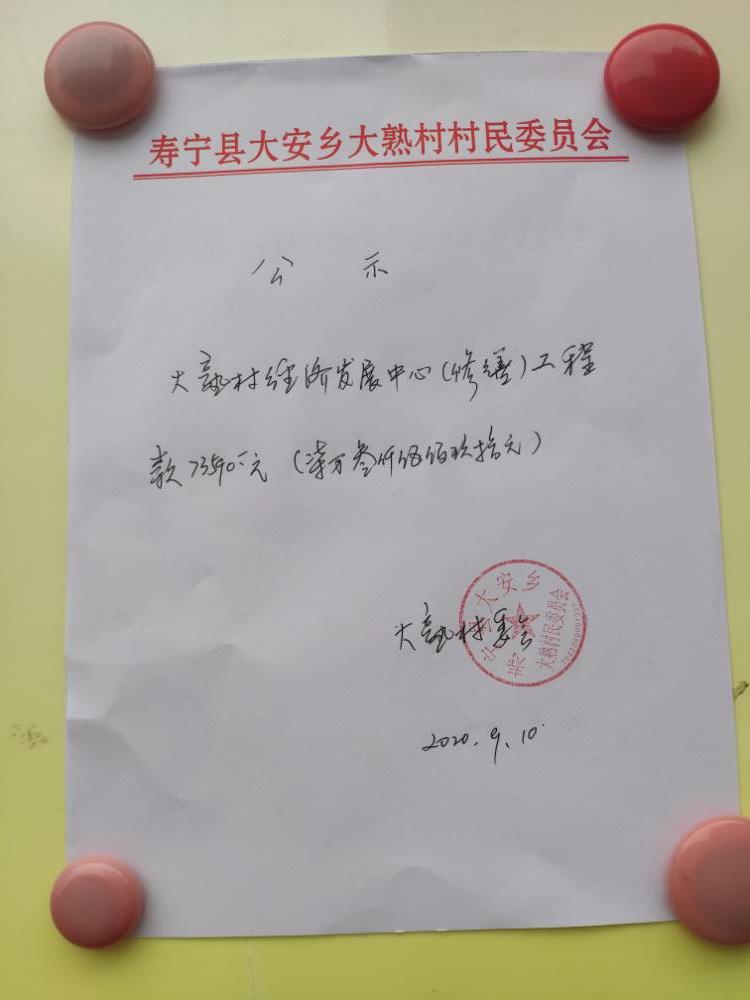 寿宁县大安乡大熟村村民委员会
公 示
大熟村经济发展中心(修缮)工程
款73590元(柒万叁仟伍佰玖拾元)
大熟村委会
2020.9.10.
寿宁县大安乡
大熟村民委员会